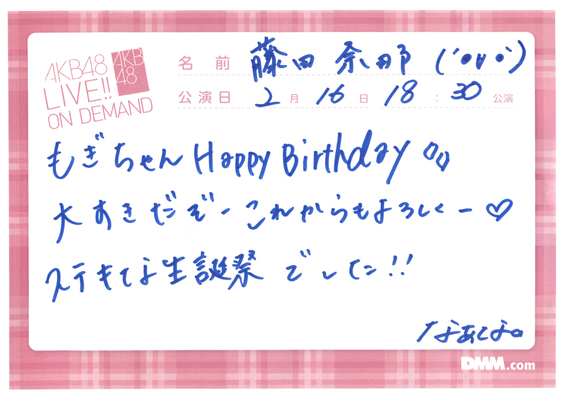 AKB48
LIVE!!
ON DEMAND
AKB
48
名前 藤田 奈那 (´•v•`)
公演日 2月16日 18:30 公演
もぎちゃん Happy Birthday
大すきだぞーこれからもよろしくー♡
ステキな生誕祭でした!!
なぁな。
DMM.com